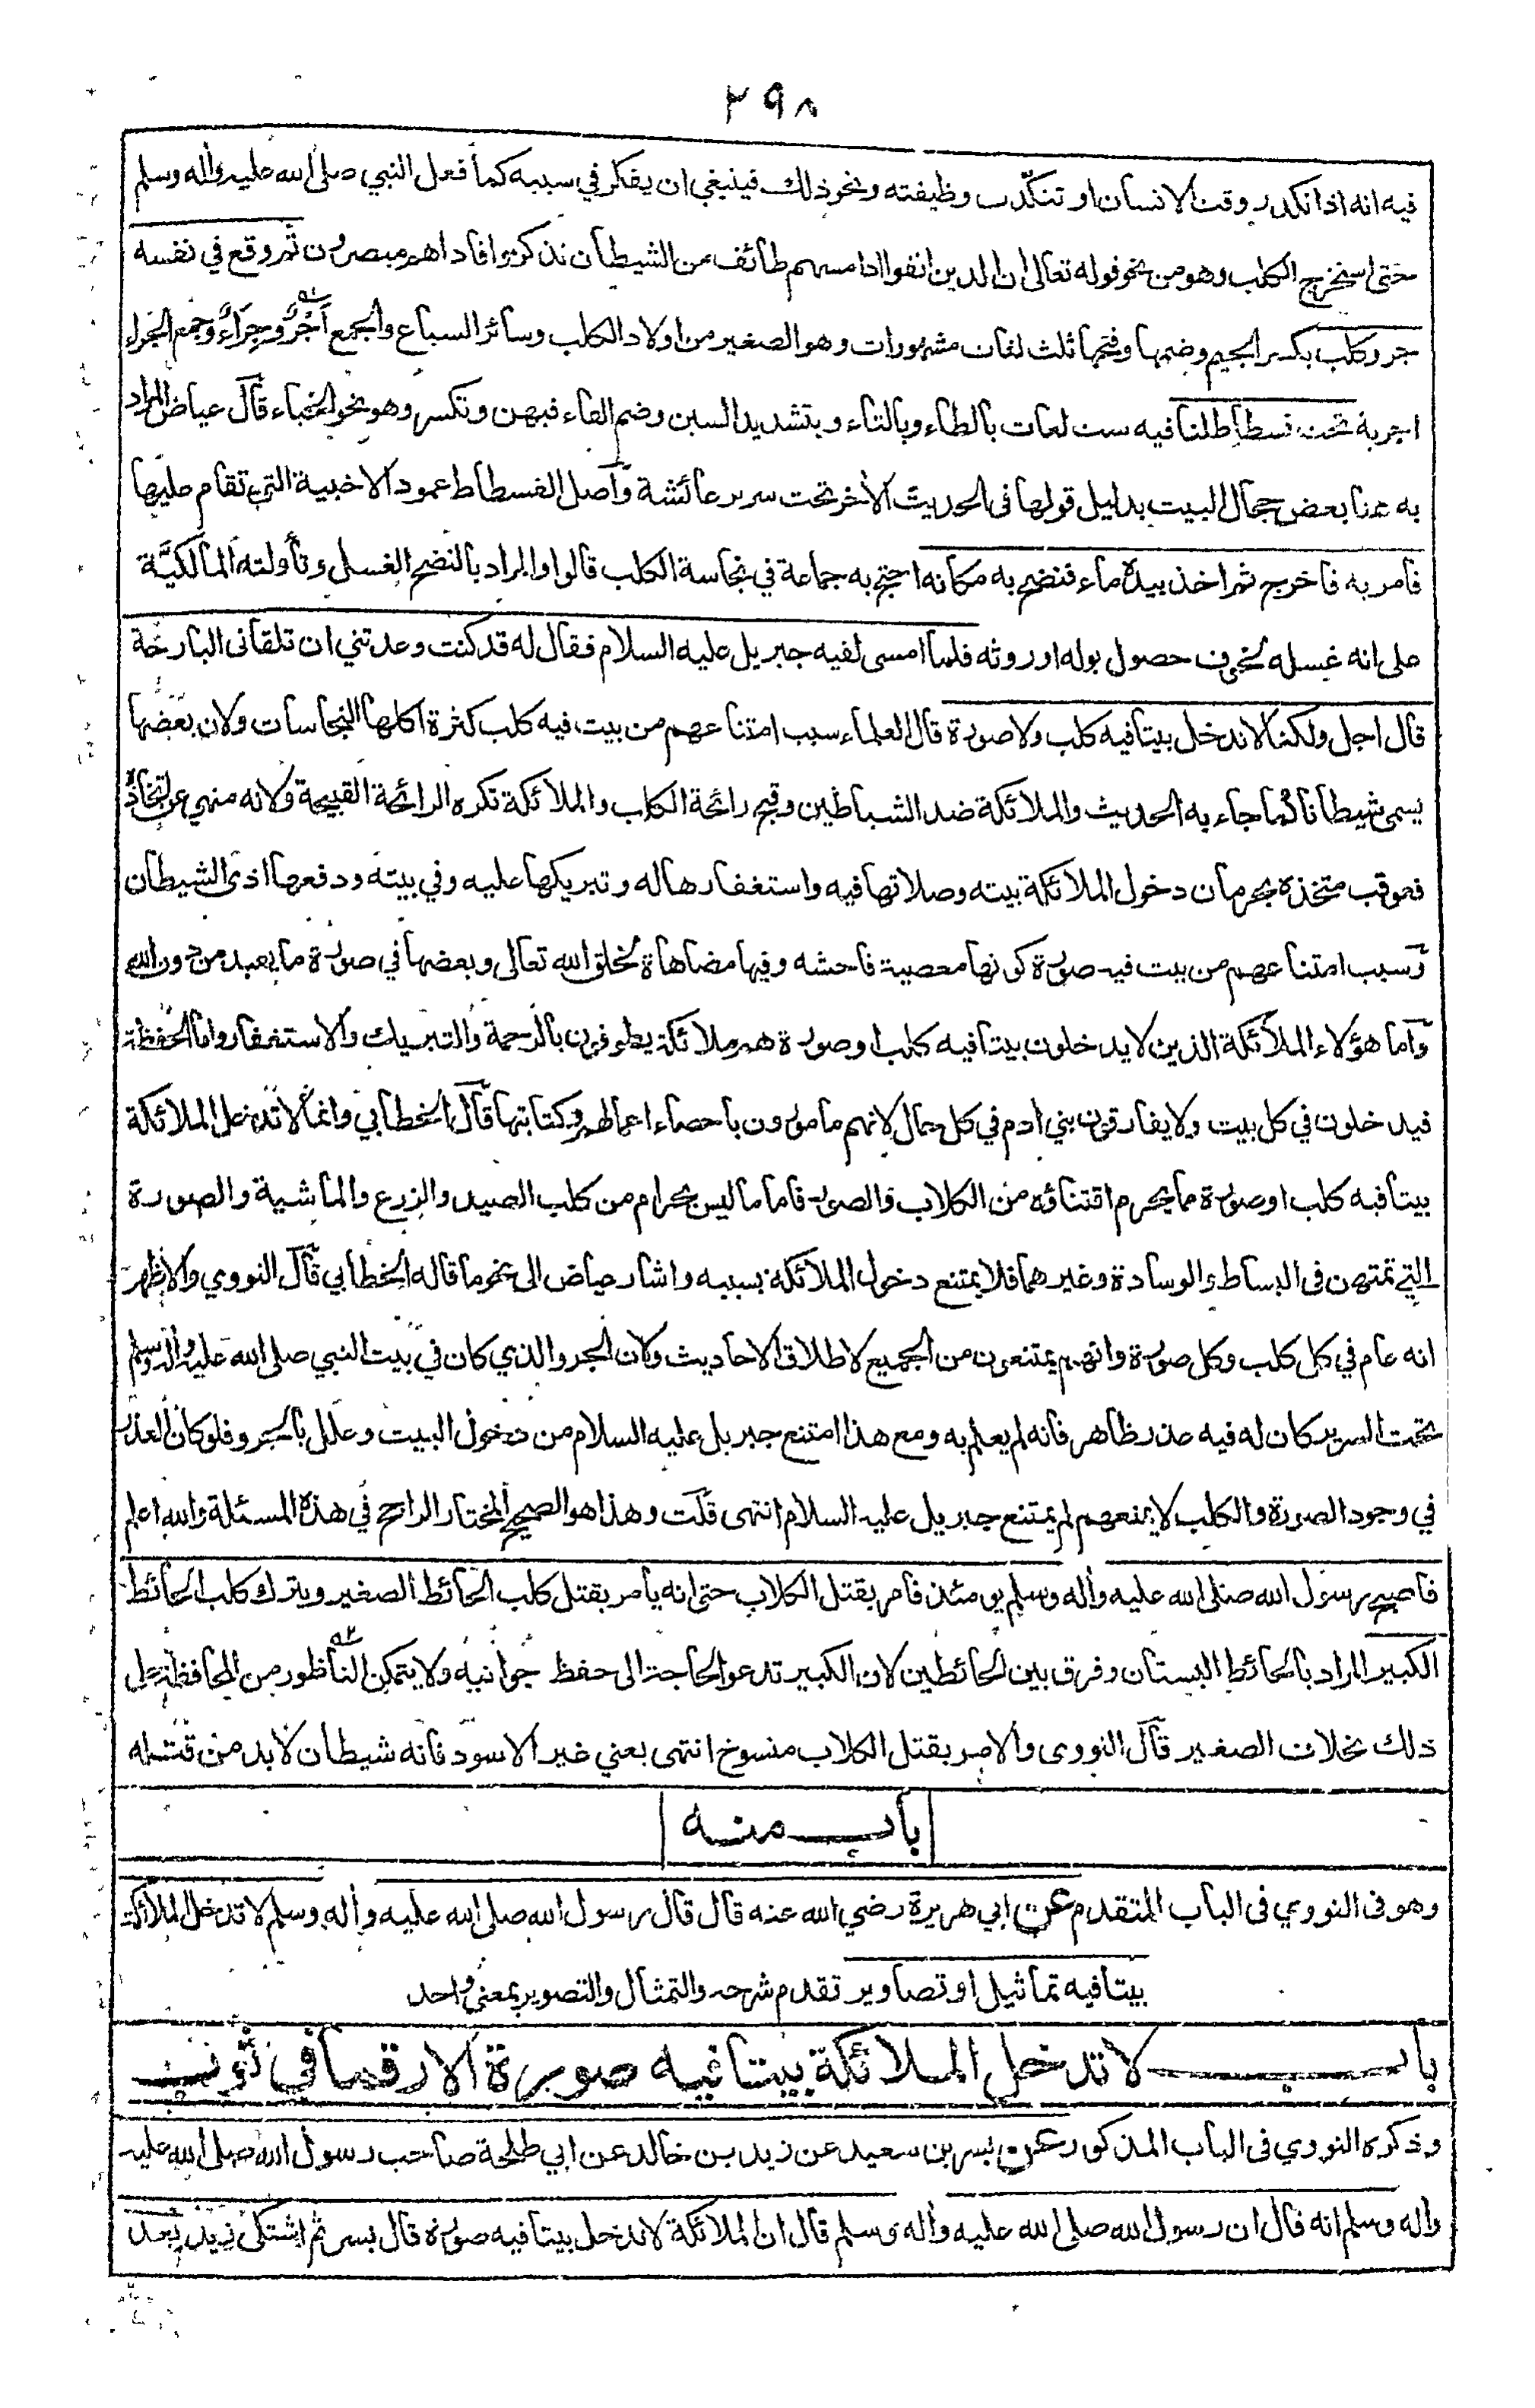 ٢٩٨
فيه انه اذا تكدر وقت الانسان او تنكدت وظيفته ونحو ذلك فينبغي ان يفكر في سببه كما فعل النبي صلى الله عليه واله وسلم
حتى استخرج الكلب وهو من نحو قوله تعالى ان الذين اتقوا اذا مسهم طائف من الشيطان تذكروا فاذاهم مبصرون ثم وقع في نفسه
جرو كلب بكسر الجيم وضمها وفتحها ثلث لغات مشهورات وهو الصغير من اولاد الكلب وسائر السباع والجمع اَجْرٍ وجِرَاءٌ وجمع الجراء
اجرية تحت فسطاط لنا فيه ست لغات بالطاء وبالتاء وبتشديد السين وضم الفاء فيهن وتكسر وهو نحو الخباء قال عياض المراد
به هنا بعض حجال البيت بدليل قولها في الحديث الأخر تحت سرير عائشة وآصل الفسطاط عمود الاخبية التي تقام عليها
فامر به فاخرج ثم اخذ بيده ماء فنضح به مكانه احتج به جماعة في نجاسة الكلب قالوا والمراد بالنضح الغسل وتأولته المالكيَّة
على انه غسله لخوف حصول بوله او روثه فلما امسى لقيه جبريل عليه السلام فقال له قد كنت وعدتني ان تلقاني البارحة
قال اجل ولكنا لا ندخل بيتا فيه كلب ولا صورة قال العلماء سبب امتناعهم من بيت فيه كلب كثرة اكلها النجاسات ولان بعضها
يسمى شيطانا كما جاء به الحديث والملائكة ضد الشياطين وقبح رائحة الكلب والملائكة تكره الرائحة القبيحة ولانه منهي عن اتخاذه
فعوقب متخذه بحرمان دخول الملائكة بيته وصلاتها فيه واستغفارها له وتبريكها عليه وفي بيته ودفعها اذى الشيطان
وسبب امتناعهم من بيت فيه صورة كونها معصية فاحشه وفيها مضاهاة لخلق الله تعالى وبعضها في صورة ما يعبد من دون الله
وآما هؤلاء الملائكة الذين لا يدخلون بيتا فيه كلب او صورة هم ملائكة يطوفون بالرحمة والتبريك والاستغفار واما الحفظة
فيدخلون في كل بيت ولا يفارقون بني ادم في كل حال لانهم مامورون باحصاء اعمالهم وكتابتها قآل الخطابي وانما لا تدخل الملائكة
بيتا فيه كلب او صورة مما يحرم اقتناؤه من الكلاب والصور فاما ما ليس بحرام من كلب الصيد والزرع والماشية والصورة
التي تمتهن في البساط والوسادة وغيرهما فلا يمتنع دخول الملائكة بسببه واشار عياض الى نحو ما قاله الخطابي قآل النووي والاظهر
انه عام في كل كلب وكل صورة وانهم يمتنعون من الجميع لاطلاق الاحاديث ولان الجرو الذي كان في بيت النبي صلى الله عليه واله وسلم
تحت السرير كان له فيه عذر ظاهر فانه لم يعلم به ومع هذا امتنع جبريل عليه السلام من دخول البيت وعلل بالجرو فلو كان العذر
في وجود الصورة والكلب لا يمنعهم لم يمتنع جبريل عليه السلام انتهى قلت وهذا هو الصحيح المختار الراجح في هذه المسئلة والله اعلم
فاصبح رسول الله صلى الله عليه واله وسلم يومئذ فامر بقتل الكلاب حتى انه يامر بقتل كلب الحائط الصغير ويترك كلب الحائط
الكبير المراد بالحائط البستان وفرق بين الحائطين لان الكبير تدعو الحاجة الى حفظ جوانبه ولا يتمكن الناظور من المحافظة على
ذلك بخلاف الصغير قآل النووى والامر بقتل الكلاب منسوخ انتهى يعني غير الاسود فانه شيطان لا بد من قتله
باب منه
وهو فى النووي فى الباب المتقدم عن ابي هريرة رضي الله عنه قال قال رسول الله صلى الله عليه واله وسلم لا تدخل الملائكة
بيتا فيه تماثيل او تصاوير تقدم شرحه والتمثال والتصوير بمعنى واحد
باب لا تدخل الملائكة بيتا فيه صورة الا رقما في ثوب
وذكره النووي فى الباب المذكور عن بسر بن سعيد عن زيد بن خالد عن ابي طلحة صاحب رسول الله صلى الله عليه
واله وسلم انه قال ان رسول الله صلى الله عليه واله وسلم قال ان الملائكة لا تدخل بيتا فيه صورة قال بسر ثم اشتكى زيد بعد